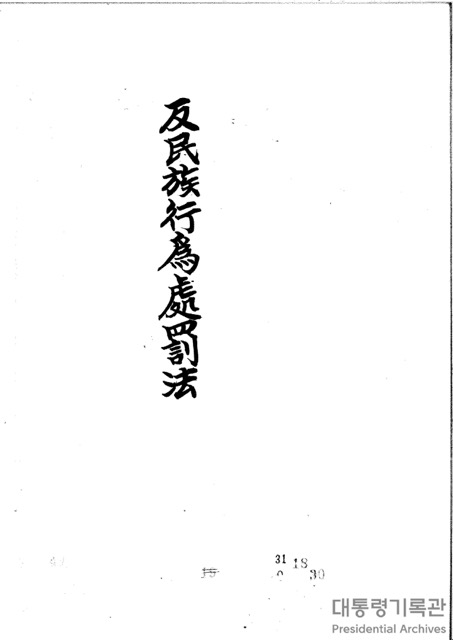 反民族行爲處罰法
31 18
30
대통령기록관
Presidential Archives